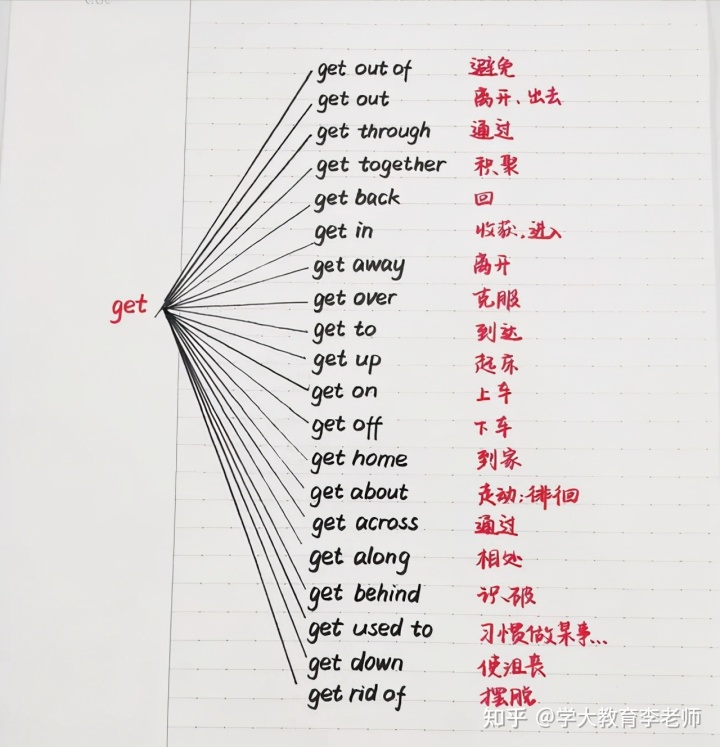 get
get out of 避免
get out 离开、出去
get through 通过
get together 积聚
get back 回
get in 收获,进入
get away 离开
get over 克服
get to 到达
get up 起床
get on 上车
get off 下车
get home 到家
get about 走动;徘徊
get across 通过
get along 相处
get behind 识破
get used to 习惯做某事...
get down 使沮丧
get rid of 摆脱
知乎 @学大教育李老师